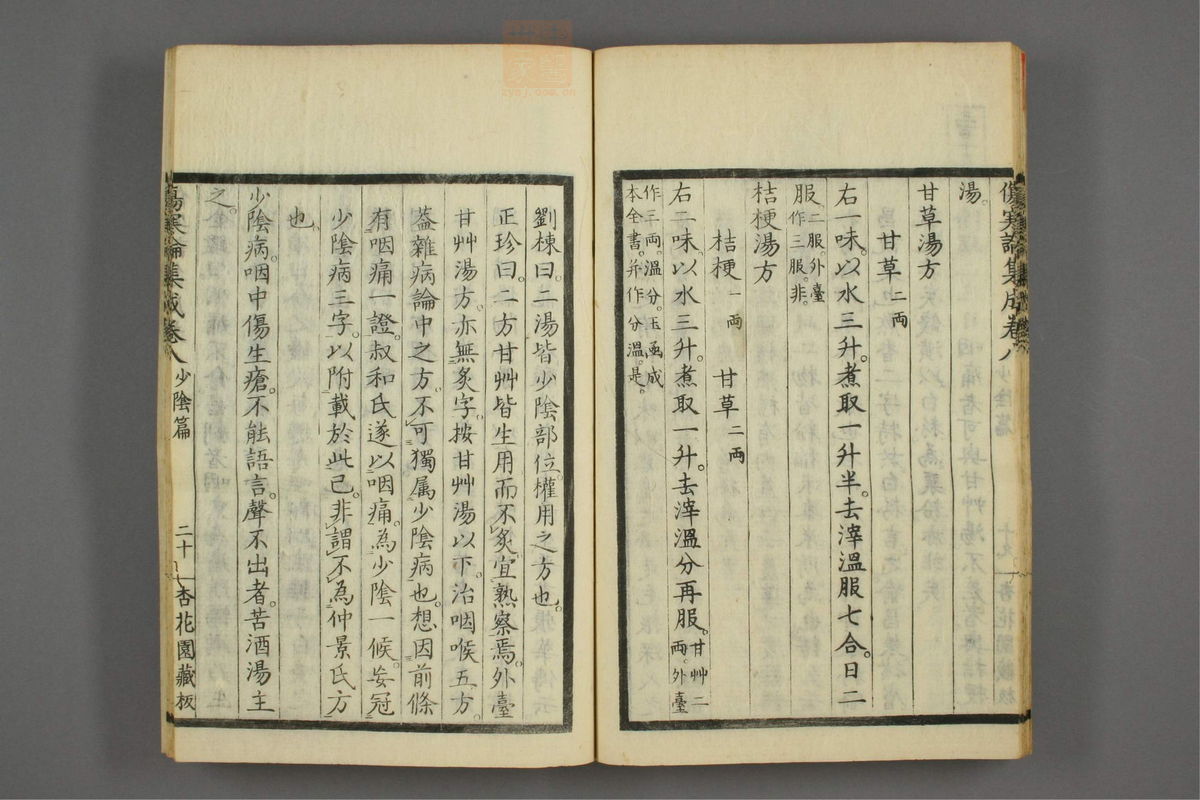 傷寒論集成卷八 少陰篇
湯。
甘草湯方
甘草二兩
右一味。以水三升。煮取一升半。去滓溫服七合日二
服。二服外臺作三服。非。
桔梗湯方
桔梗一兩 甘草二兩
右二味。以水三升。煮取一升。去滓溫分再服。甘艸二兩。外臺
作三兩。溫分。玉函成本全書。并作分溫。是。
劉棟曰。二湯皆少陰部位。權用之方也。
正珍曰。二方甘艸皆生用而不炙。宜熟察焉。外臺
甘艸湯方。亦無炙字。按甘艸湯以下。治咽喉五方。
蓋雜病論中之方。不可獨属少陰病也。想因前條
有咽痛一證。叔和氏遂以咽痛。為少陰一候。妄冠
少陰病三字。以附載於此已。非謂不為仲景氏方
也。
少陰病。咽中傷生瘡。不能語言。聲不出者。苦酒湯主
之。
傷寒論集成卷八 少陰篇 二十 杏花園藏板